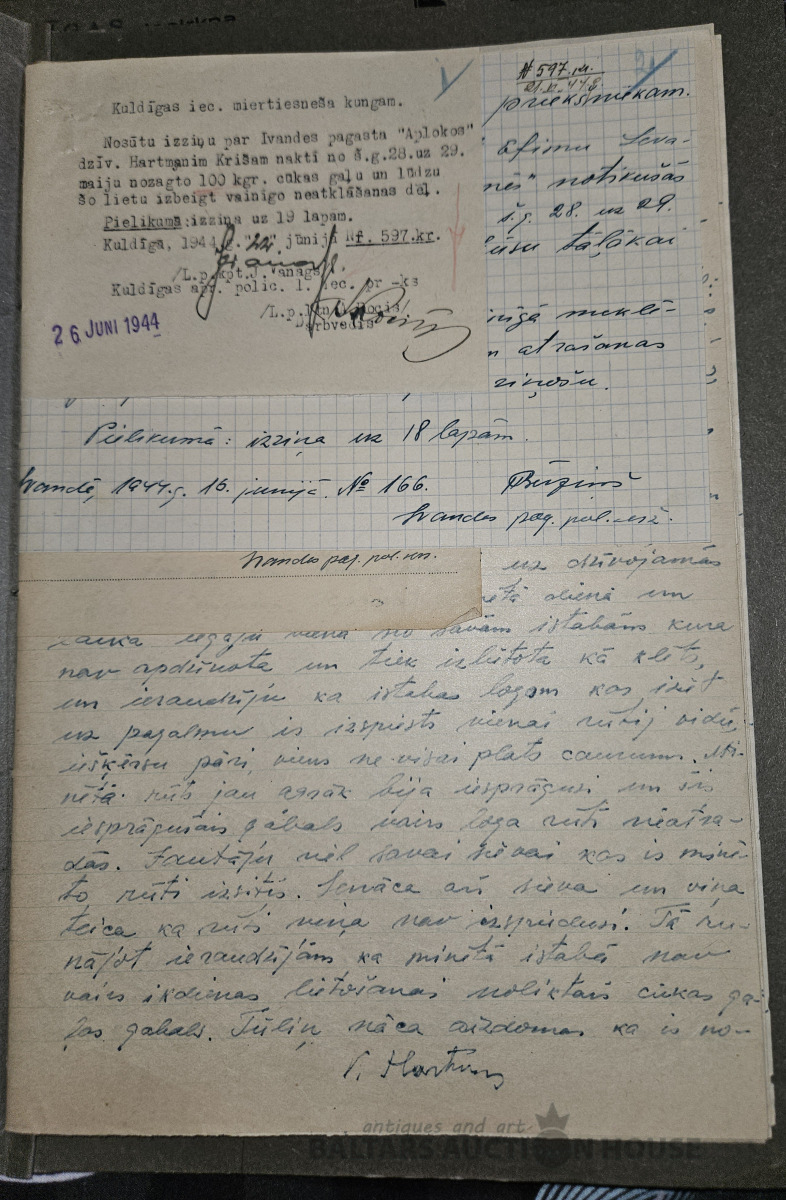 Kuldīgas iec. miertiesneša kungam.
Nosūtu izziņu par Ivandes pagasta "Aplokos"
dzīv. Hartmanim Krišam naktī no š.g.28.uz 29.
maiju nozagto 100 kgr. cūkas gaļu un lūdzu
šo lietu izbeigt vainīgo neatklāšanas dēļ.
Pielikumā:izziņa uz 19 lapām.
Kuldīgā, 1944.g. "22" jūnijā Nr. 597.kr.
/L.p.kpt.J.Vanags/.
Kuldīgas apr. polic. 1. iec. pr -ks
/L.p.
Darbvedis
26 JUNI 1944
№ 597
priekšniekam.
notikušās
š.g. 28. uz 29.
tālākai
meklē-
atrašanas
ziņošu.
Pielikumā: izziņa uz 18 lapām.
Ivandē, 1944.g. 16. junijā. № 166.
Ivandes pag. pol.
Ivandes pag. pol.
uz dzīvojamās
dienā un
laika iegāju vienā no savām istabām kura
nav apdzīvota un tiek izlietota kā klēts,
un ieraudzīju ka istabas logam kas iziet
uz pagalmu ir izspiests vienai rūtij vidū,
iešķērsu pāri, viens ne visai plats caurums. Mi-
nētā rūts jau agrāk bija iesprāgusi un šis
iesprāgušais gabals vairs loga rūtī neatra-
dās. Jautāju vēl savai sievai kas ir minē-
to rūti izsitis. Ienāca arī sieva un viņa
teica ka rūti viņa nav izspiedusi. Tā ru-
nājot ieraudzījām ka minētā istabā nav
vairs ikdienas lietošanai noliktais cūkas ga-
ļas gabals. Tūliņ nāca aizdomas ka ir no-
antiques and art
BALTARS AUCTION HOUSE